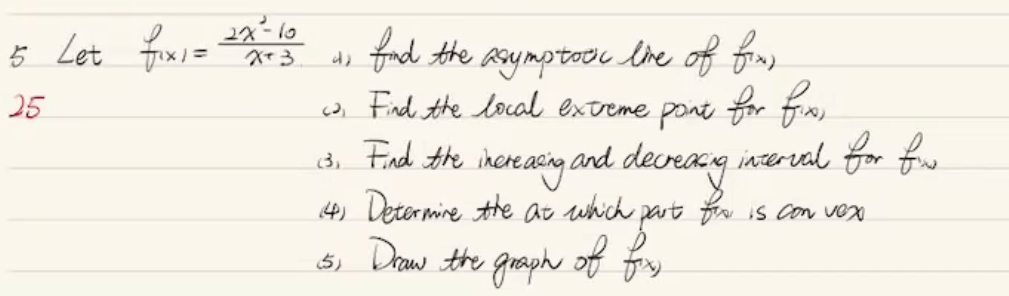 5 Let f(x) = (2x²-10)/(x+3) (1) find the asymptotic line of f(x)
25 (2) Find the local extreme point for f(x)
(3) Find the increasing and decreasing interval for f(x)
(4) Determine the at which part f(x) is con vex
(5) Draw the graph of f(x)